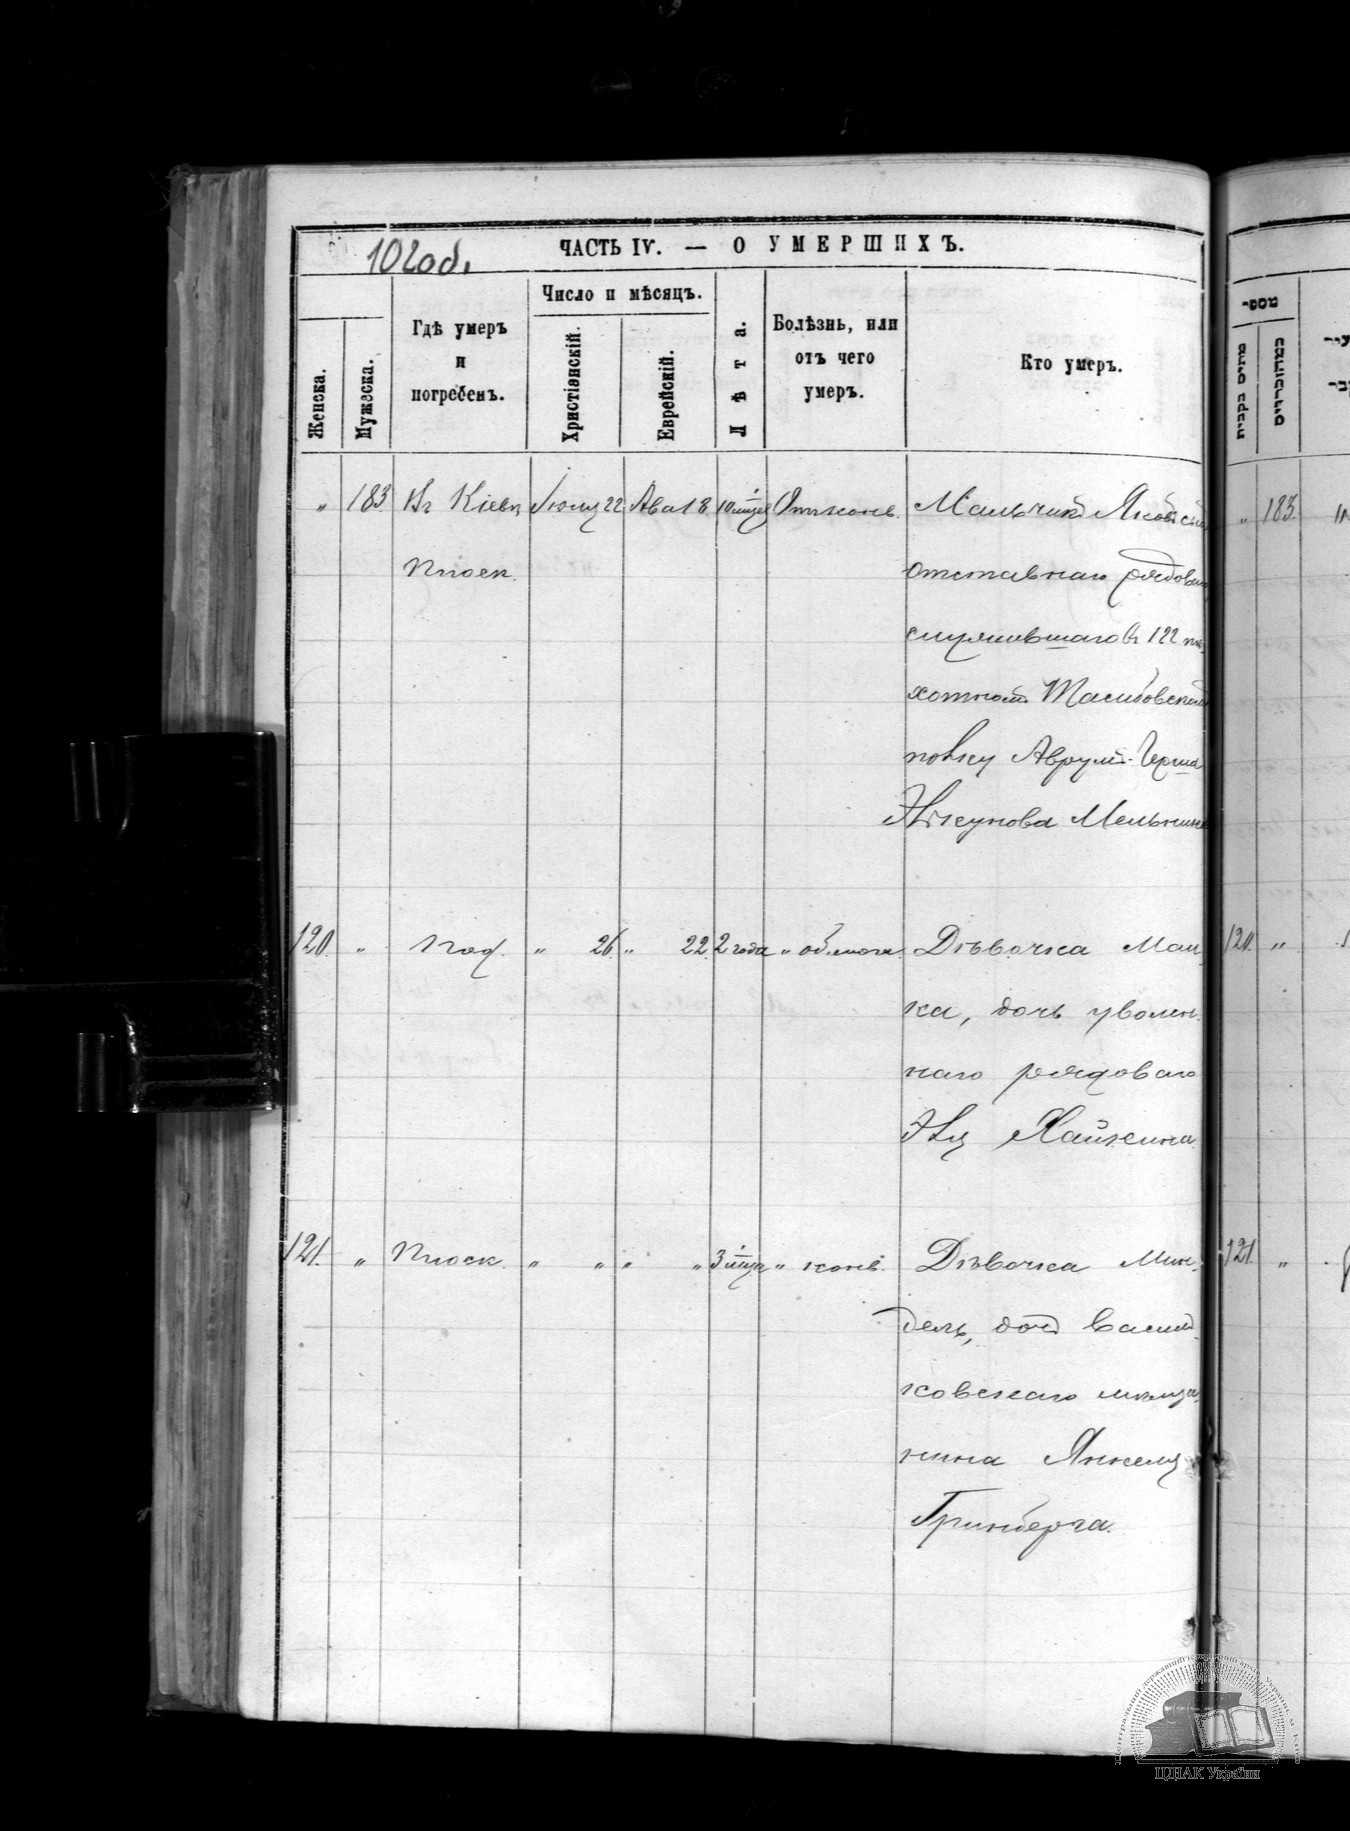 102 об.
ЧАСТЬ IV. — О УМЕРШИХЪ.
Женска.
Мужеска.
Гдѣ умеръ
и
погребенъ.
Число и мѣсяцъ.
Христіанскій.
Еврейскій.
Лѣта.
Болѣзнь, или
отъ чего
умеръ.
Кто умеръ.
מספר
מחים נקבות
„ 183 Въ Кіевѣ Іюля 22 Ава 18. 10 Отъ конв. Мальчикъ
Плоск. отставнаго рядового
служившаго въ 122 пѣ-
хотномъ Тамбовскомъ
полку Аврумъ-Герша
Мельника
120. „ Под. „ 26. „ 22. 2 года „ Дѣвочка Мань-
ка, дочь уволен-
наго рядоваго
Хайкина.
121. „ Плоск. „ „ „ „ 3 мѣсяца „ конв. Дѣвочка Мин-
дель, дочь Василь-
ковскаго мѣща-
нина Янкеля
Гринберга.
„ 183.
120. „
121. „
ЦДІАК України